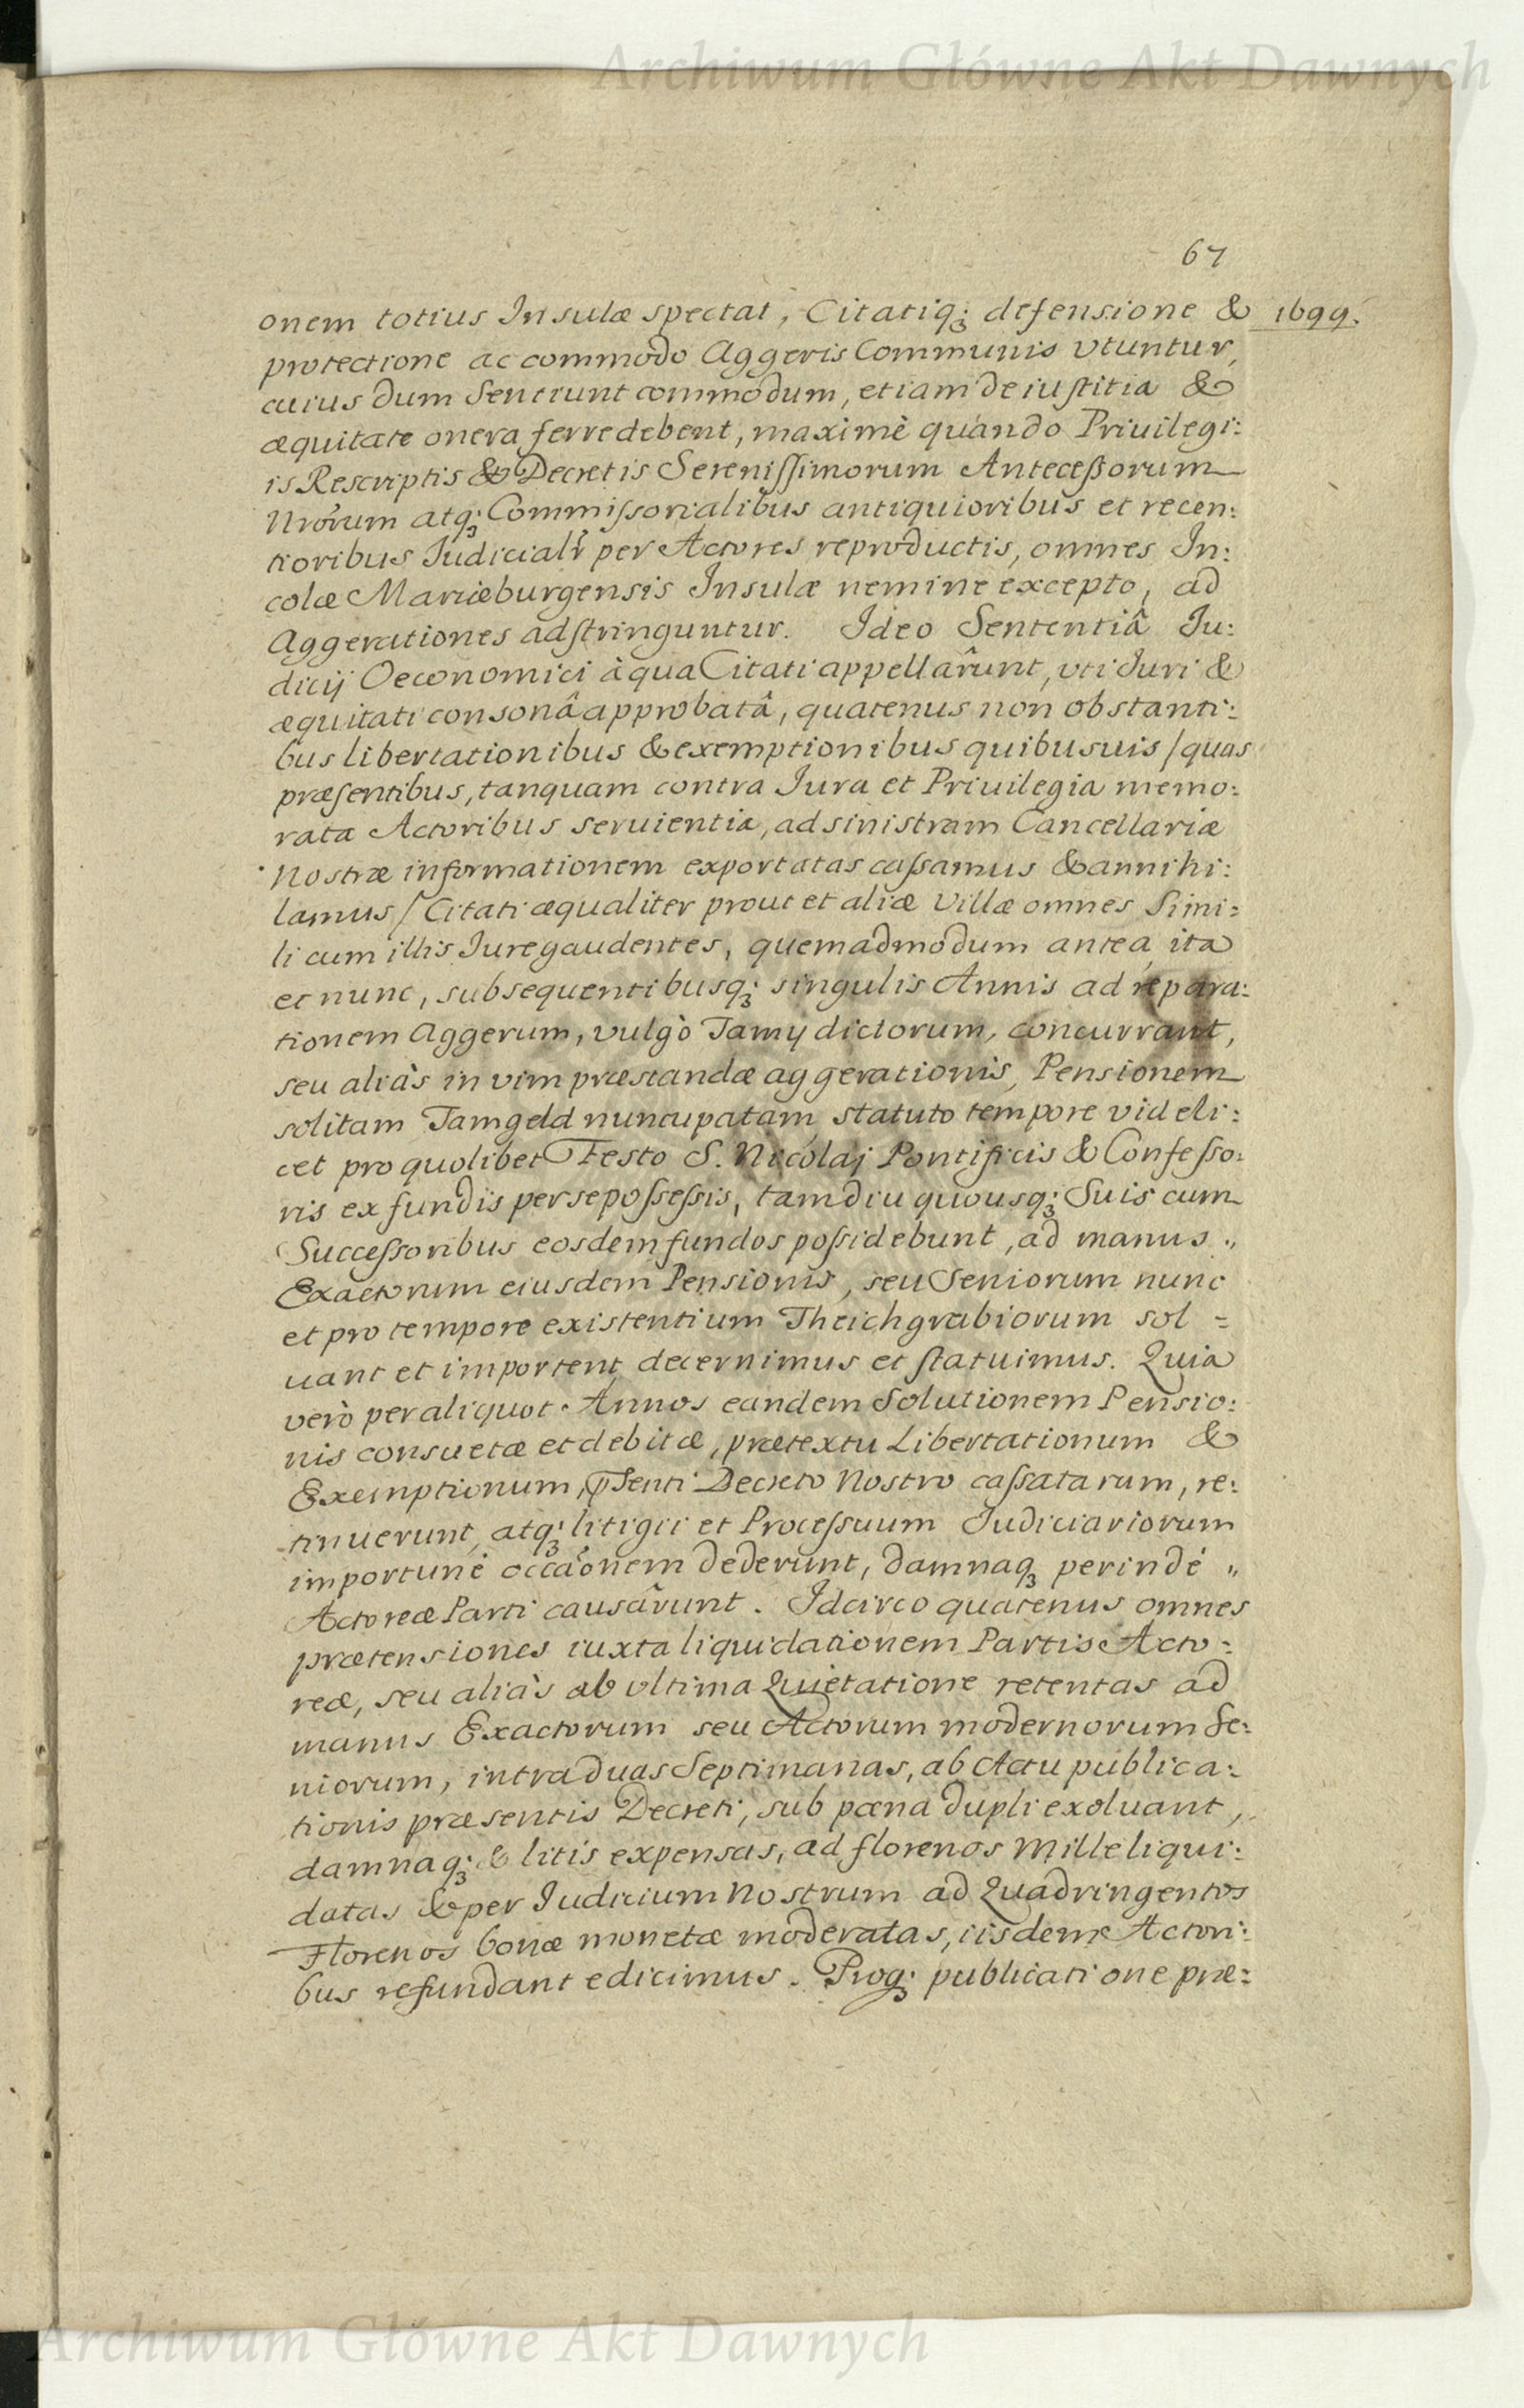 Archiwum Główne Akt Dawnych
67
onem totius Insulæ spectat, Citatiq; defensione & 1699.
protectione ac commodo Aggeris Communis vtuntur,
cuius dum Sentiunt commodum, etiam de iustitia &
æquitate onera ferre debent, maximè quando Priuilegi:
is Rescriptis & Decretis Serenissimorum Antecessorum
Nrorum atq; Commissorialibus antiquioribus et recen:
tioribus Judicialr per Actores reproductis, omnes In:
colæ Mariæburgensis Insulæ nemine excepto, ad
Aggerationes adstringuntur. Ideo Sententiâ Ju:
dicij Oeconomici à qua Citati appellârunt, vti Juri &
æquitati consonâ approbatâ, quatenus non obstanti:
bus libertationibus & exemptionibus quibusuis /quas
præsentibus, tanquam contra Jura et Priuilegia memo:
rata Actoribus seruientia, ad sinistram Cancellariæ
Nostræ informationem exportatas cassamus & annihi:
lamus/ Citati æqualiter prout et aliæ Villæ omnes Simi:
li cum illis Jure gaudentes, quemadmodum antea, ita
et nunc, subsequentibusq; singulis Annis ad repara:
tionem Aggerum, vulgò Tamÿ dictorum, concurrant,
seu aliàs in vim præstandæ aggerationis, Pensionem
solitam Tamgeld nuncupatam, statuto tempore videli:
cet pro quolibet Festo S. Nicolai Pontificis & Confesso:
ris ex fundis per se possessis, tamdiu quousq; Suis cum
Successoribus eosdem fundos possidebunt, ad manus „
Exactorum eiusdem Pensionis, seu Seniorum nunc
et pro tempore existentium Theichgrabiorum sol =
uant et importent, decernimus et statuimus. Quia
verò per aliquot Annos eandem Solutionem Pensio:
nis consuetæ et debitæ, prætextu Libertationum &
Exemptionum, psenti Decreto Nostro cassatarum, re:
tinuerunt, atq; litigii et Processuum Judiciariorum
importunè occaonem dederunt, damnaq; perindè „
Actoreæ Parti causârunt. Idcirco quatenus omnes
prætensiones iuxta liquidationem Partis Acto:
reæ, seu aliàs ab vltima Quietatione retentas ad
manus Exactorum seu Actorum modernorum Se:
niorum, intra duas Septimanas, ab Actu publica:
tionis præsentis Decreti, sub pæna dupli exoluant,
damnaq; & litis expensas, ad florenos Mille liqui:
datas & per Judicium Nostrum ad Quadringentos
Florenos bonæ monetæ moderatas, iisdem Actori:
bus refundant edicimus. Proq; publicatione præ:
Archiwum Główne Akt Dawnych